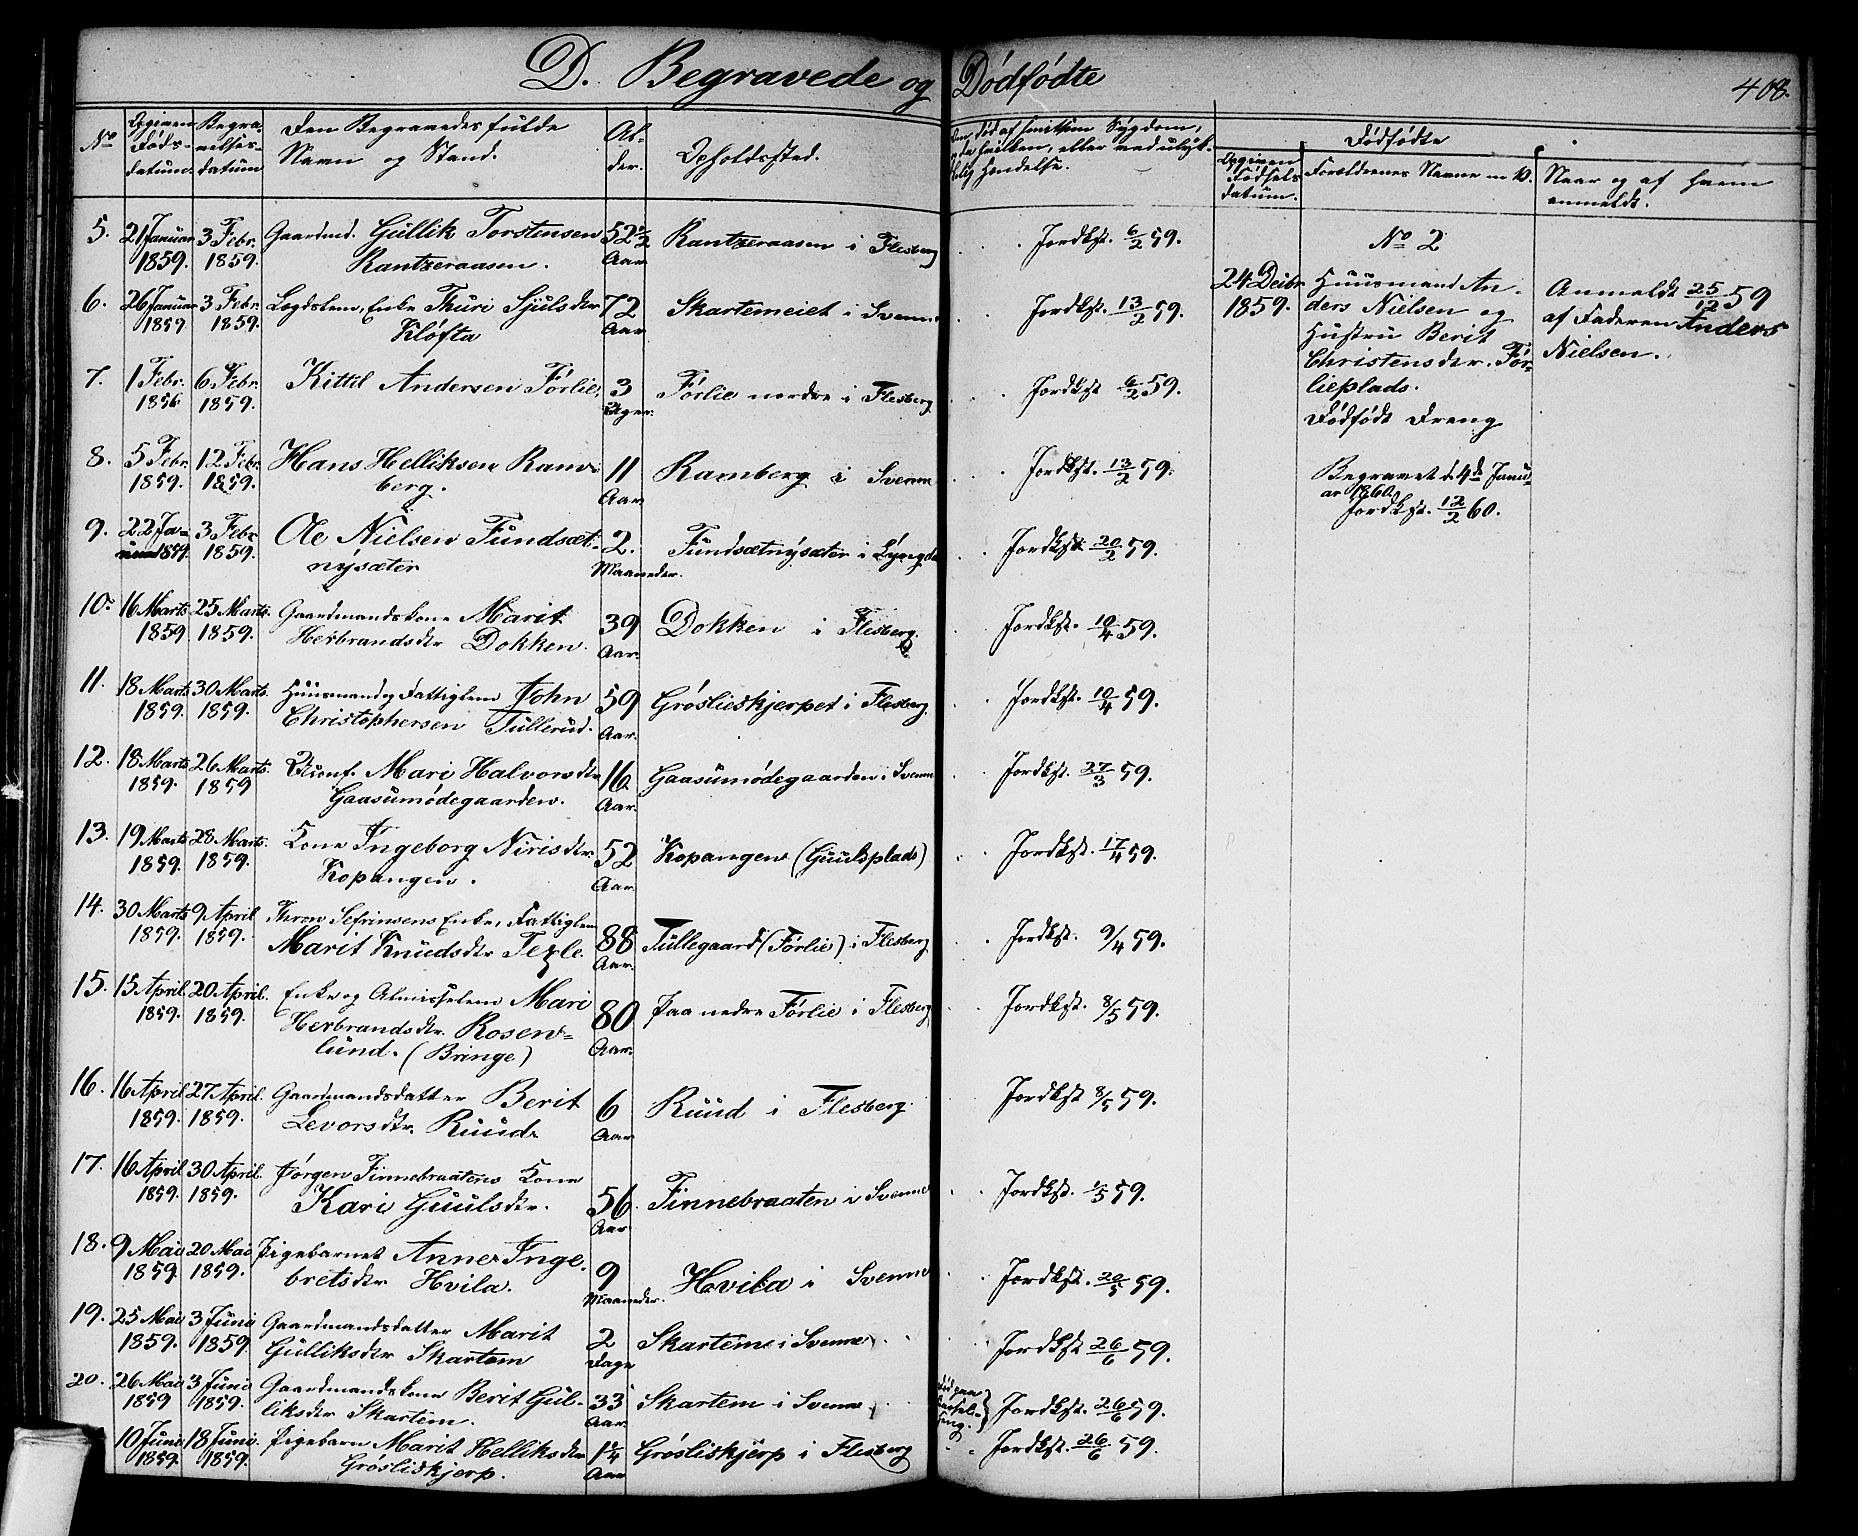 D. Begravede og Dødfødte
408.
No
Opgiven Døds-datum.
Begravelses-datum
Den Begravedes fulde Navn og Stand.
Al-der.
Opholdssted.
død af smitsom Sygdom, hvilken, eller ved ulyk-kelig Hendelse.
Dødfødte
Opgiven Fødsels datum.
Forældrenes Navne m. V.
Naar og af hvem anmeldt.
5. 21 Januar 1859. 3 Febr. 1859. Gaardmd. Gullik Torstensen Rantzeraasen. 52 1/2 Aar Rantzeraasen i Flesberg Jordkst. 6/2 59.
6. 26 Januar 1859 3 Febr. 1859. Logdslem, Enke Thuri Sjulsdtr Kløfta 72 Aar Skartemeiet i Svenne Jordkst. 13/2 59.
7. 1 Febr. 1856 6 Febr. 1859. Kittil Andersen Førlie, 3 Uger. Førlie nordre i Flesberg Jordkst 6/2 59.
8. 5 Febr. 1859. 12 Febr. 1859. Hans Helliksen Ramberg. 11 Aar Ramberg i Svenne Jordkst. 13/2 59.
9. 22 Januar 1859. 3 Febr 1859. Ole Nielsen Fundsæt-nysæter 2. Maaneder. Fundsætnysæter i Lyngdal Jordkst 20/2 59.
10. 16 Marts 1859. 25 Marts 1859. Gaardmandskone Marit Herbrandsdtr Dokken. 39 Aar. Dokken i Flesberg. Jordkst. 10/4 59.
11. 18 Marts 1859. 30 Marts. 1859. Huusmand og Fattiglem John Christophersen Tullerud. 59 Aar. Grøslieskjerpet i Flesberg. Jordkst. 10/4 59.
12. 18 Marts 1859. 26 Marts. 1859 Ukonf. Mari Halvorsdtr Gaasumødegaarden. 16 Aar. Gaasumødegaarden i Svenne Jordkst. 27/3 59.
13. 19 Marts 1859. 28 Marts. 1859. Kone Ingeborg Nirisdtr. Kopangen. 52 Aar. Kopangen (Guulsplads) Jordkst. 17/4 59.
14. 30 Marts 1859. 9 April 1859. Thron Sefrinsens Enke, Fattiglem Marit Knudsdtr Tezle. 88 Aar. Tullegaard (Førlie) i Flesberg. Jordkst. 9/4 59.
15. 15 April 1859. 20 April. 1859. Enke og Almisselem Mari Herbrandsdtr. Rosen-lund. (Bringe) 80 Aar. paa nedre Førlie i Flesberg Jordkst. 8/5 59.
16. 16 April 1859. 27 April. 1859. Gaardmandsdatter Berit Levorsdtr. Ruud. 6 Aar Ruud i Flesberg. Jordkst 8/5 59.
17. 16 April 1859. 30 April. 1859. Jørgen Finnebraatens Kone Kari Guulsdtr. 56 Aar Finnebraaten i Svenne Jordkst. 1/5 59.
18. 9 Mai 1859. 20 Mai 1859. Pigebarnet Anne Inge-bretsdtr Hvila. 9 Maaneder. Hvila i Svenne Jordkst. 20/5 59.
19. 25 Mai 1859. 3 Juni 1859 Gaardmandsdatter Marit Gulliksdtr Skartem 2 Dage Skartem i Svenne Jordkst 26/6 59.
20. 26 Mai 1859 3 Juni 1859. Gaardmandskone Berit Gul-liksdtr Skartem. 33 Aar. Skartem i Svenne død paa Barsel-seng. Jordkst. 26/6 59.
10 Juni 1859. 18 Juni. 1859. Pigebarn Marit Helliksdtr Grøsliskjerp. 1 1/4 Aar Grøsliskjerp i Flesberg Jordkst. 26/6 59.
No 2
24 Decbr 1859.
Huusmand An-
ders Nielsen og
Hustru Berit
Christensdtr. Før-
lieplads.
Dødfødt Dreng
Begravet d. 4de Janu-
ar 1860
Jordkst. 12/2 60.
Anmeldt 25/12 59
af Faderen Anders
Nielsen.